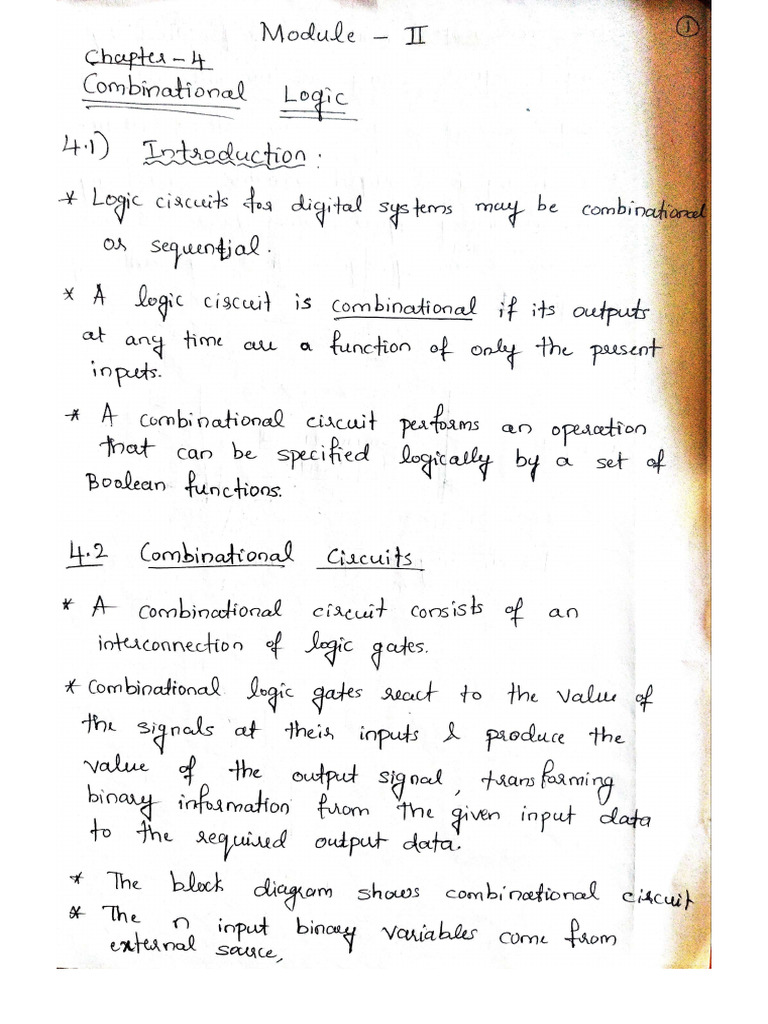 Module - II
1
Chapter - 4
Combinational Logic
4.1) Introduction :
* Logic circuits for digital systems may be combinational
or sequential.
* A logic circuit is combinational if its outputs
at any time are a function of only the present
inputs.
* A combinational circuit performs an operation
that can be specified logically by a set of
Boolean functions.
4.2 Combinational Circuits.
* A combinational circuit consists of an
interconnection of logic gates.
* Combinational logic gates react to the value of
the signals at their inputs & produce the
value of the output signal, transforming
binary information from the given input data
to the required output data.
* The block diagram shows combinational circuit
* The n input binary variables come from
external source,